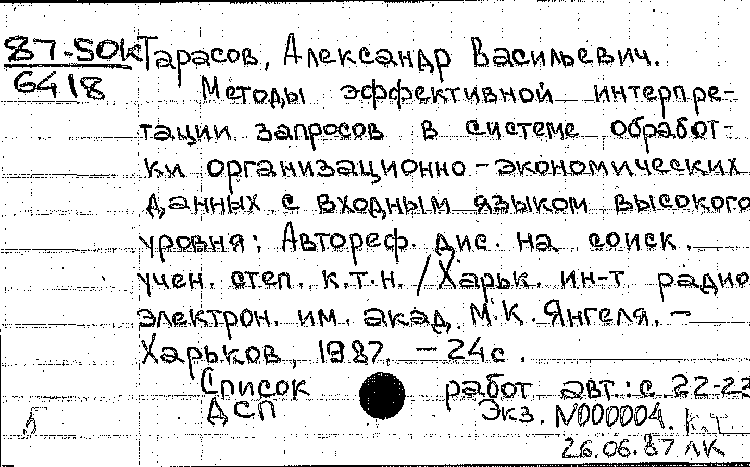 87-5OK Тарасов, Александр Васильевич.
6418 Методы эффективной интерпре-
тации запросов в системе обработ-
ки организационно-экономических
данных с входным языком высокого
уровня: Автореф. дис. на соиск.
учен. степ. к.т.н. / Харьк. ин-т радио
электрон. им. акад. М.К. Янгеля. –
Харьков, 1987. – 24с.
Список работ авт.: с 22-23
ДСП Экз. N000004. к.т.
26.06.87 ЛК